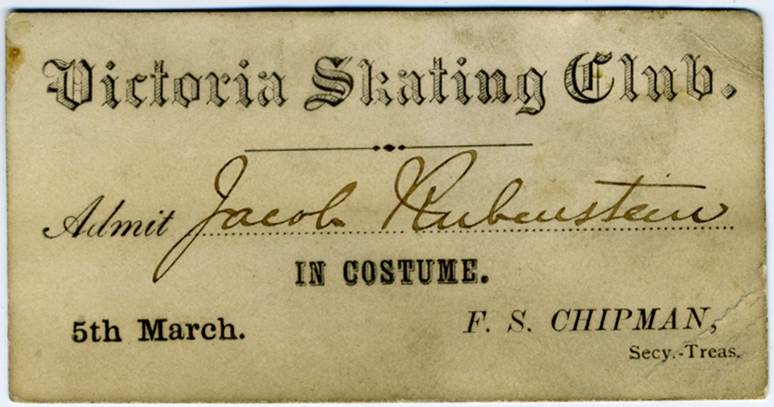 Victoria Skating Club.
Admit Jacob Rubenstein
IN COSTUME.
5th March.
F. S. CHIPMAN,
Secy.-Treas.